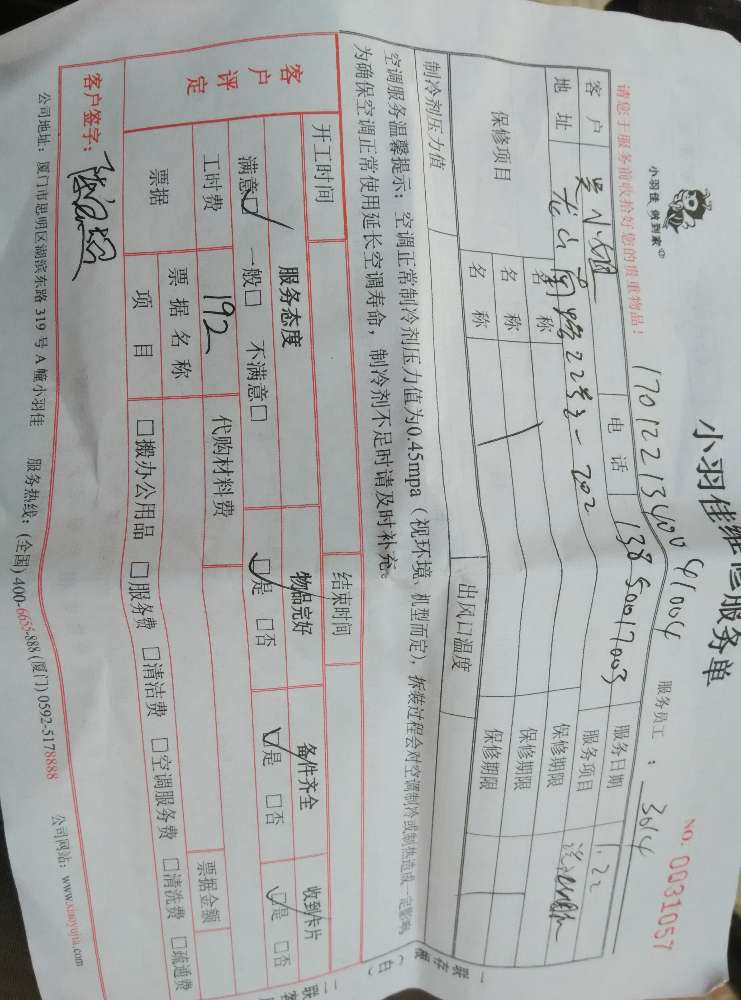 小羽佳 做到家
小羽佳维修服务单
NO. 0031057
17012213400 41004
服务员工: 3014
请您于服务前收拾好您的贵重物品!
客户 吴小姐 电话 13850017003 服务日期 1.22
地址 龙山南路22号之一202 服务项目
保修项目 名称 保修期限
名称 保修期限
名称 保修期限
制冷剂压力值 出风口温度
空调服务温馨提示: 空调正常制冷剂压力值为0.45mpa(视环境、机型而定), 拆装过程会对空调制冷或制热造成一定影响
为确保空调正常使用延长空调寿命, 制冷剂不足时请及时补充。
一联存根(白)
二联客
开工时间 结束时间
客户评定 服务态度 物品完好 备件齐全 收到卡片
满意☑ 一般□ 不满意□ ☑是 □否 ☑是 □否 ☑是 □否
工时费 192 代购材料费
票据 票据名称 票据金额
项目 □搬办公用品 □服务费 □清洁费 □空调服务费 □清洗费 □疏通费
客户签字:
公司地址: 厦门市思明区湖滨东路 319 号 A 幢小羽佳 服务热线: (全国) 400-6655-888 (厦门) 0592-5178888 公司网站: www.xiaoyujia.com